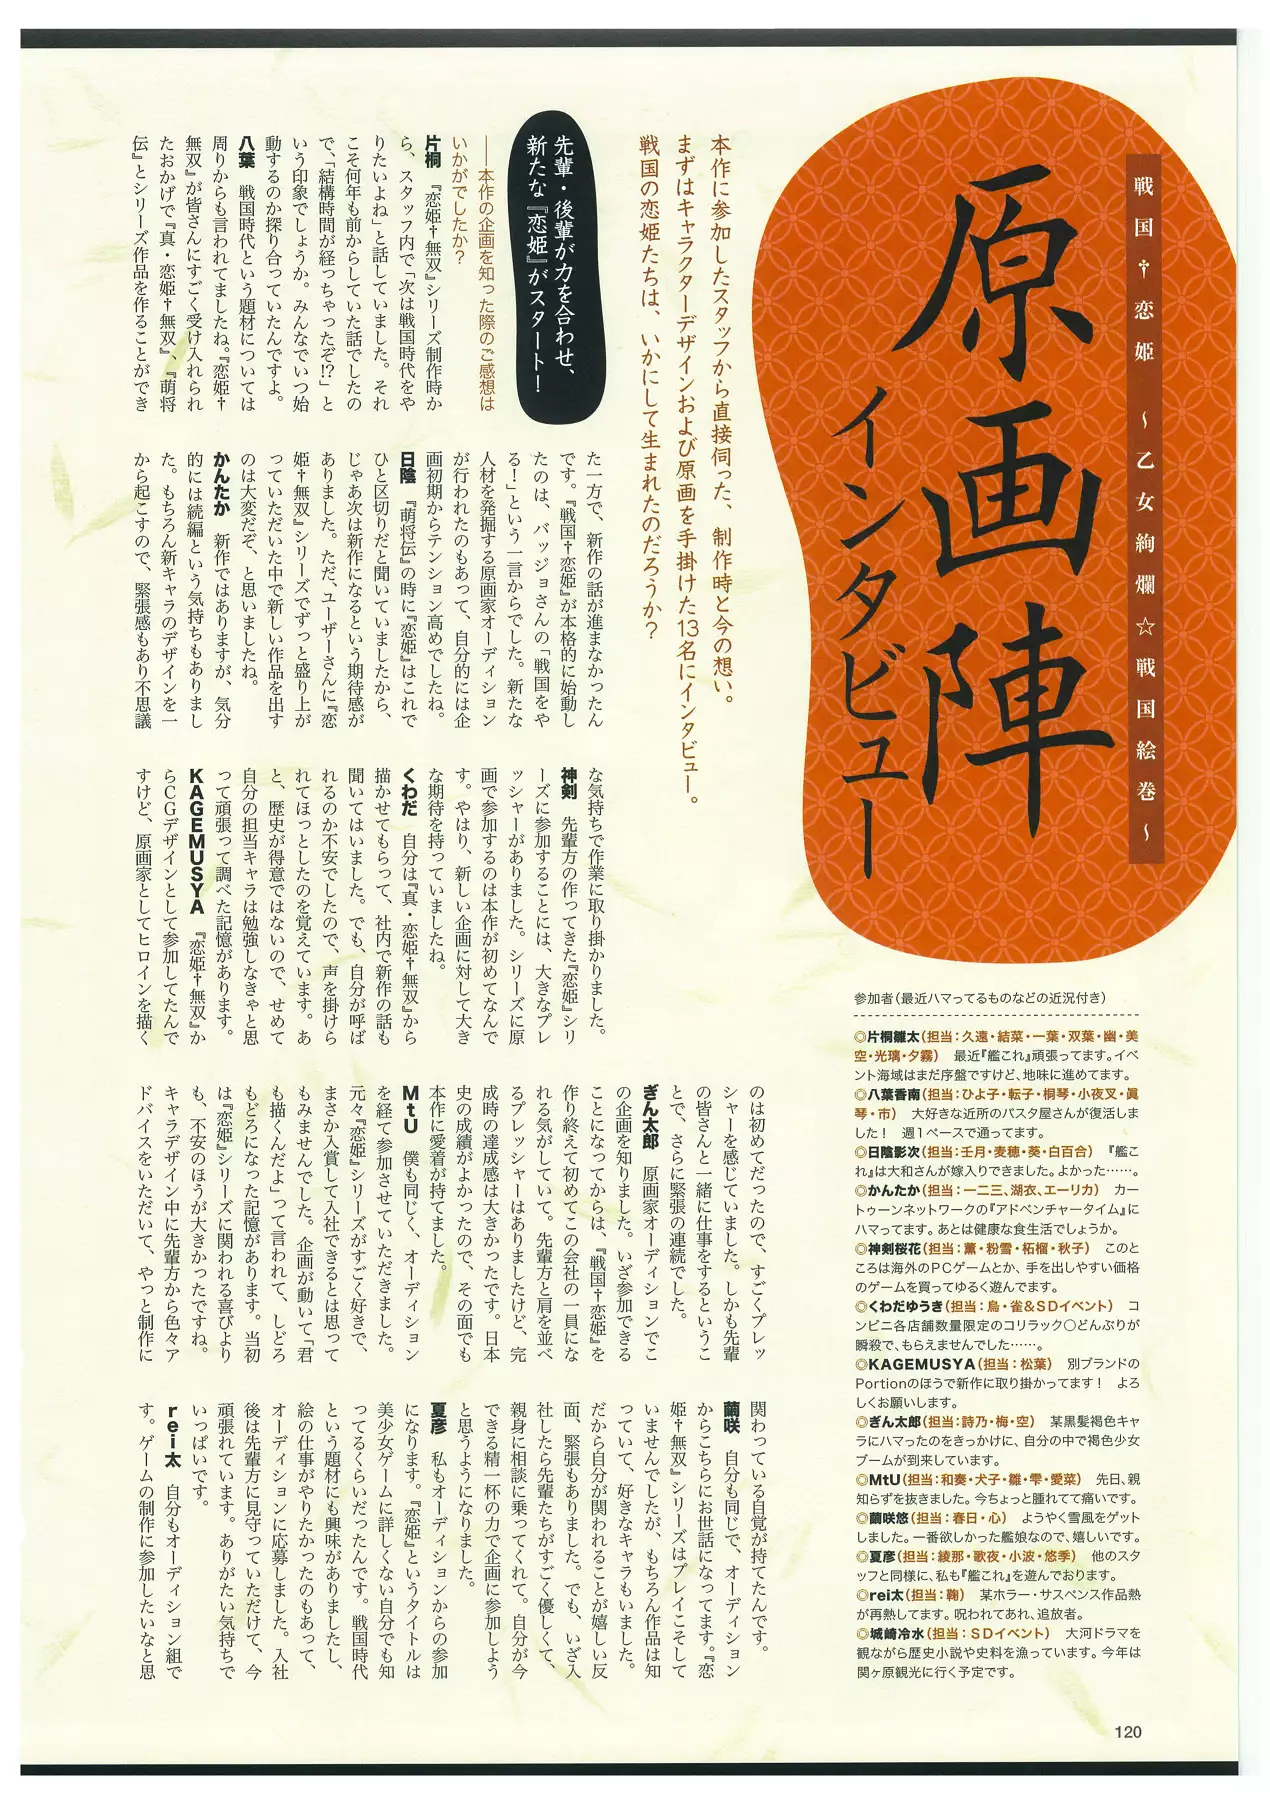 戦国†恋姫 ～乙女絢爛☆戦国絵巻～
原画陣
インタビュー
本作に参加したスタッフから直接伺った、制作時と今の想い。
まずはキャラクターデザインおよび原画を手掛けた13名にインタビュー。
戦国の恋姫たちは、いかにして生まれたのだろうか?
先輩・後輩が力を合わせ、
新たな『恋姫』がスタート!
――本作の企画を知った際のご感想は
いかがでしたか?
片桐 『恋姫†無双』シリーズ制作時か
ら、スタッフ内で「次は戦国時代をや
りたいよね」と話していました。それ
こそ何年も前からしていた話でしたの
で、「結構時間が経っちゃったぞ!?」と
いう印象でしょうか。みんなでいつ始
動するのか探り合っていたんですよ。
八葉 戦国時代という題材については
周りからも言われてましたね。『恋姫†
無双』が皆さんにすごく受け入れられ
たおかげで『真・恋姫†無双』、『萌将
伝』とシリーズ作品を作ることができ
た一方で、新作の話が進まなかったん
です。『戦国†恋姫』が本格的に始動し
たのは、バッジョさんの「戦国をや
る!」という一言からでした。新たな
人材を発掘する原画家オーディション
が行われたのもあって、自分的には企
画初期からテンション高めでしたね。
日陰 『萌将伝』の時に『恋姫』はこれで
ひと区切りだと聞いていましたから、
じゃあ次は新作になるという期待感が
ありました。ただ、ユーザーさんに『恋
姫†無双』シリーズでずっと盛り上が
っていただいた中で新しい作品を出す
のは大変だぞ、と思いましたね。
かんたか 新作ではありますが、気分
的には続編という気持ちもありまし
た。もちろん新キャラのデザインを一
から起こすので、緊張感もあり不思議
な気持ちで作業に取り掛かりました。
神剣 先輩方の作ってきた『恋姫』シリ
ーズに参加することには、大きなプレ
ッシャーがありました。シリーズに原
画で参加するのは本作が初めてなんで
す。やはり、新しい企画に対して大き
な期待を持っていましたね。
くわだ 自分は『真・恋姫†無双』から
描かせてもらって、社内で新作の話も
聞いてはいました。でも、自分が呼ば
れるのか不安でしたので、声を掛けら
れてほっとしたのを覚えています。あ
と、歴史が得意ではないので、せめて
自分の担当キャラは勉強しなきゃと思
って頑張って調べた記憶があります。
KAGEMUSYA 『恋姫†無双』か
らCGデザインとして参加してたんで
すけど、原画家としてヒロインを描く
のは初めてだったので、すごくプレッ
シャーを感じていました。しかも先輩
の皆さんと一緒に仕事をするというこ
とで、さらに緊張の連続でした。
ぎん太郎 原画家オーディションでこ
の企画を知りました。いざ参加できる
ことになってからは、『戦国†恋姫』を
作り終えて初めてこの会社の一員にな
れる気がしていて。先輩方と肩を並べ
るプレッシャーはありましたけど、完
成時の達成感は大きかったです。日本
史の成績がよかったので、その面でも
本作に愛着が持てました。
MtU 僕も同じく、オーディション
を経て参加させていただきました。
元々『恋姫』シリーズがすごく好きで、
まさか入賞して入社できるとは思って
もみませんでした。企画が動いて「君
も描くんだよ」って言われて、しどろ
もどろになった記憶があります。当初
は『恋姫』シリーズに関われる喜びより
も、不安のほうが大きかったですね。
キャラデザイン中に先輩方から色々ア
ドバイスをいただいて、やっと制作に
関わっている自覚が持てたんです。
繭咲 自分も同じで、オーディション
からこちらにお世話になってます。『恋
姫†無双』シリーズはプレイこそして
いませんでしたが、もちろん作品は知
っていて、好きなキャラもいました。
だから自分が関われることが嬉しい反
面、緊張もありました。でも、いざ入
社したら先輩たちがすごく優しくて、
親身に相談に乗ってくれて。自分が今
できる精一杯の力で企画に参加しよう
と思うようになりました。
夏彦 私もオーディションからの参加
になります。『恋姫』というタイトルは
美少女ゲームに詳しくない自分でも知
ってるくらいだったんです。戦国時代
という題材にも興味がありましたし、
絵の仕事がやりたかったのもあって、
オーディションに応募しました。入社
後は先輩方に見守っていただけて、今
頑張れています。ありがたい気持ちで
いっぱいです。
rei太 自分もオーディション組で
す。ゲームの制作に参加したいなと思
参加者(最近ハマってるものなどの近況付き)
◎片桐雛太(担当:久遠・結菜・一葉・双葉・幽・美
空・光璃・夕霧) 最近『艦これ』頑張ってます。イベ
ント海域はまだ序盤ですけど、地味に進めてます。
◎八葉香南(担当:ひよ子・転子・桐琴・小夜叉・眞
琴・市) 大好きな近所のパスタ屋さんが復活しま
した! 週1ペースで通ってます。
◎日陰影次(担当:壬月・麦穂・葵・白百合) 『艦こ
れ』は大和さんが嫁入りできました。よかった……。
◎かんたか(担当:一二三、湖衣、エーリカ) カー
トゥーンネットワークの『アドベンチャータイム』に
ハマってます。あとは健康な食生活でしょうか。
◎神剣桜花(担当:薫・粉雪・柘榴・秋子) このと
ころは海外のPCゲームとか、手を出しやすい価格
のゲームを買ってゆるく遊んでます。
◎くわだゆうき(担当:烏・雀&SDイベント) コ
ンビニ各店舗数量限定のコリラック○どんぶりが
瞬殺で、もらえませんでした……。
◎KAGEMUSYA(担当:松葉) 別ブランドの
Portionのほうで新作に取り掛かってます! よろ
しくお願いします。
◎ぎん太郎(担当:詩乃・梅・空) 某黒髪褐色キャ
ラにハマったのをきっかけに、自分の中で褐色少女
ブームが到来しています。
◎MtU(担当:和奏・犬子・雛・雫・愛菜) 先日、親
知らずを抜きました。今ちょっと腫れてて痛いです。
◎繭咲悠(担当:春日・心) ようやく雪風をゲット
しました。一番欲しかった艦娘なので、嬉しいです。
◎夏彦(担当:綾那・歌夜・小波・悠季) 他のスタ
ッフと同様に、私も『艦これ』を遊んでおります。
◎rei太(担当:鞠) 某ホラー・サスペンス作品熱
が再熱してます。呪われてあれ、追放者。
◎城崎冷水(担当:SDイベント) 大河ドラマを
観ながら歴史小説や史料を漁っています。今年は
関ヶ原観光に行く予定です。
120